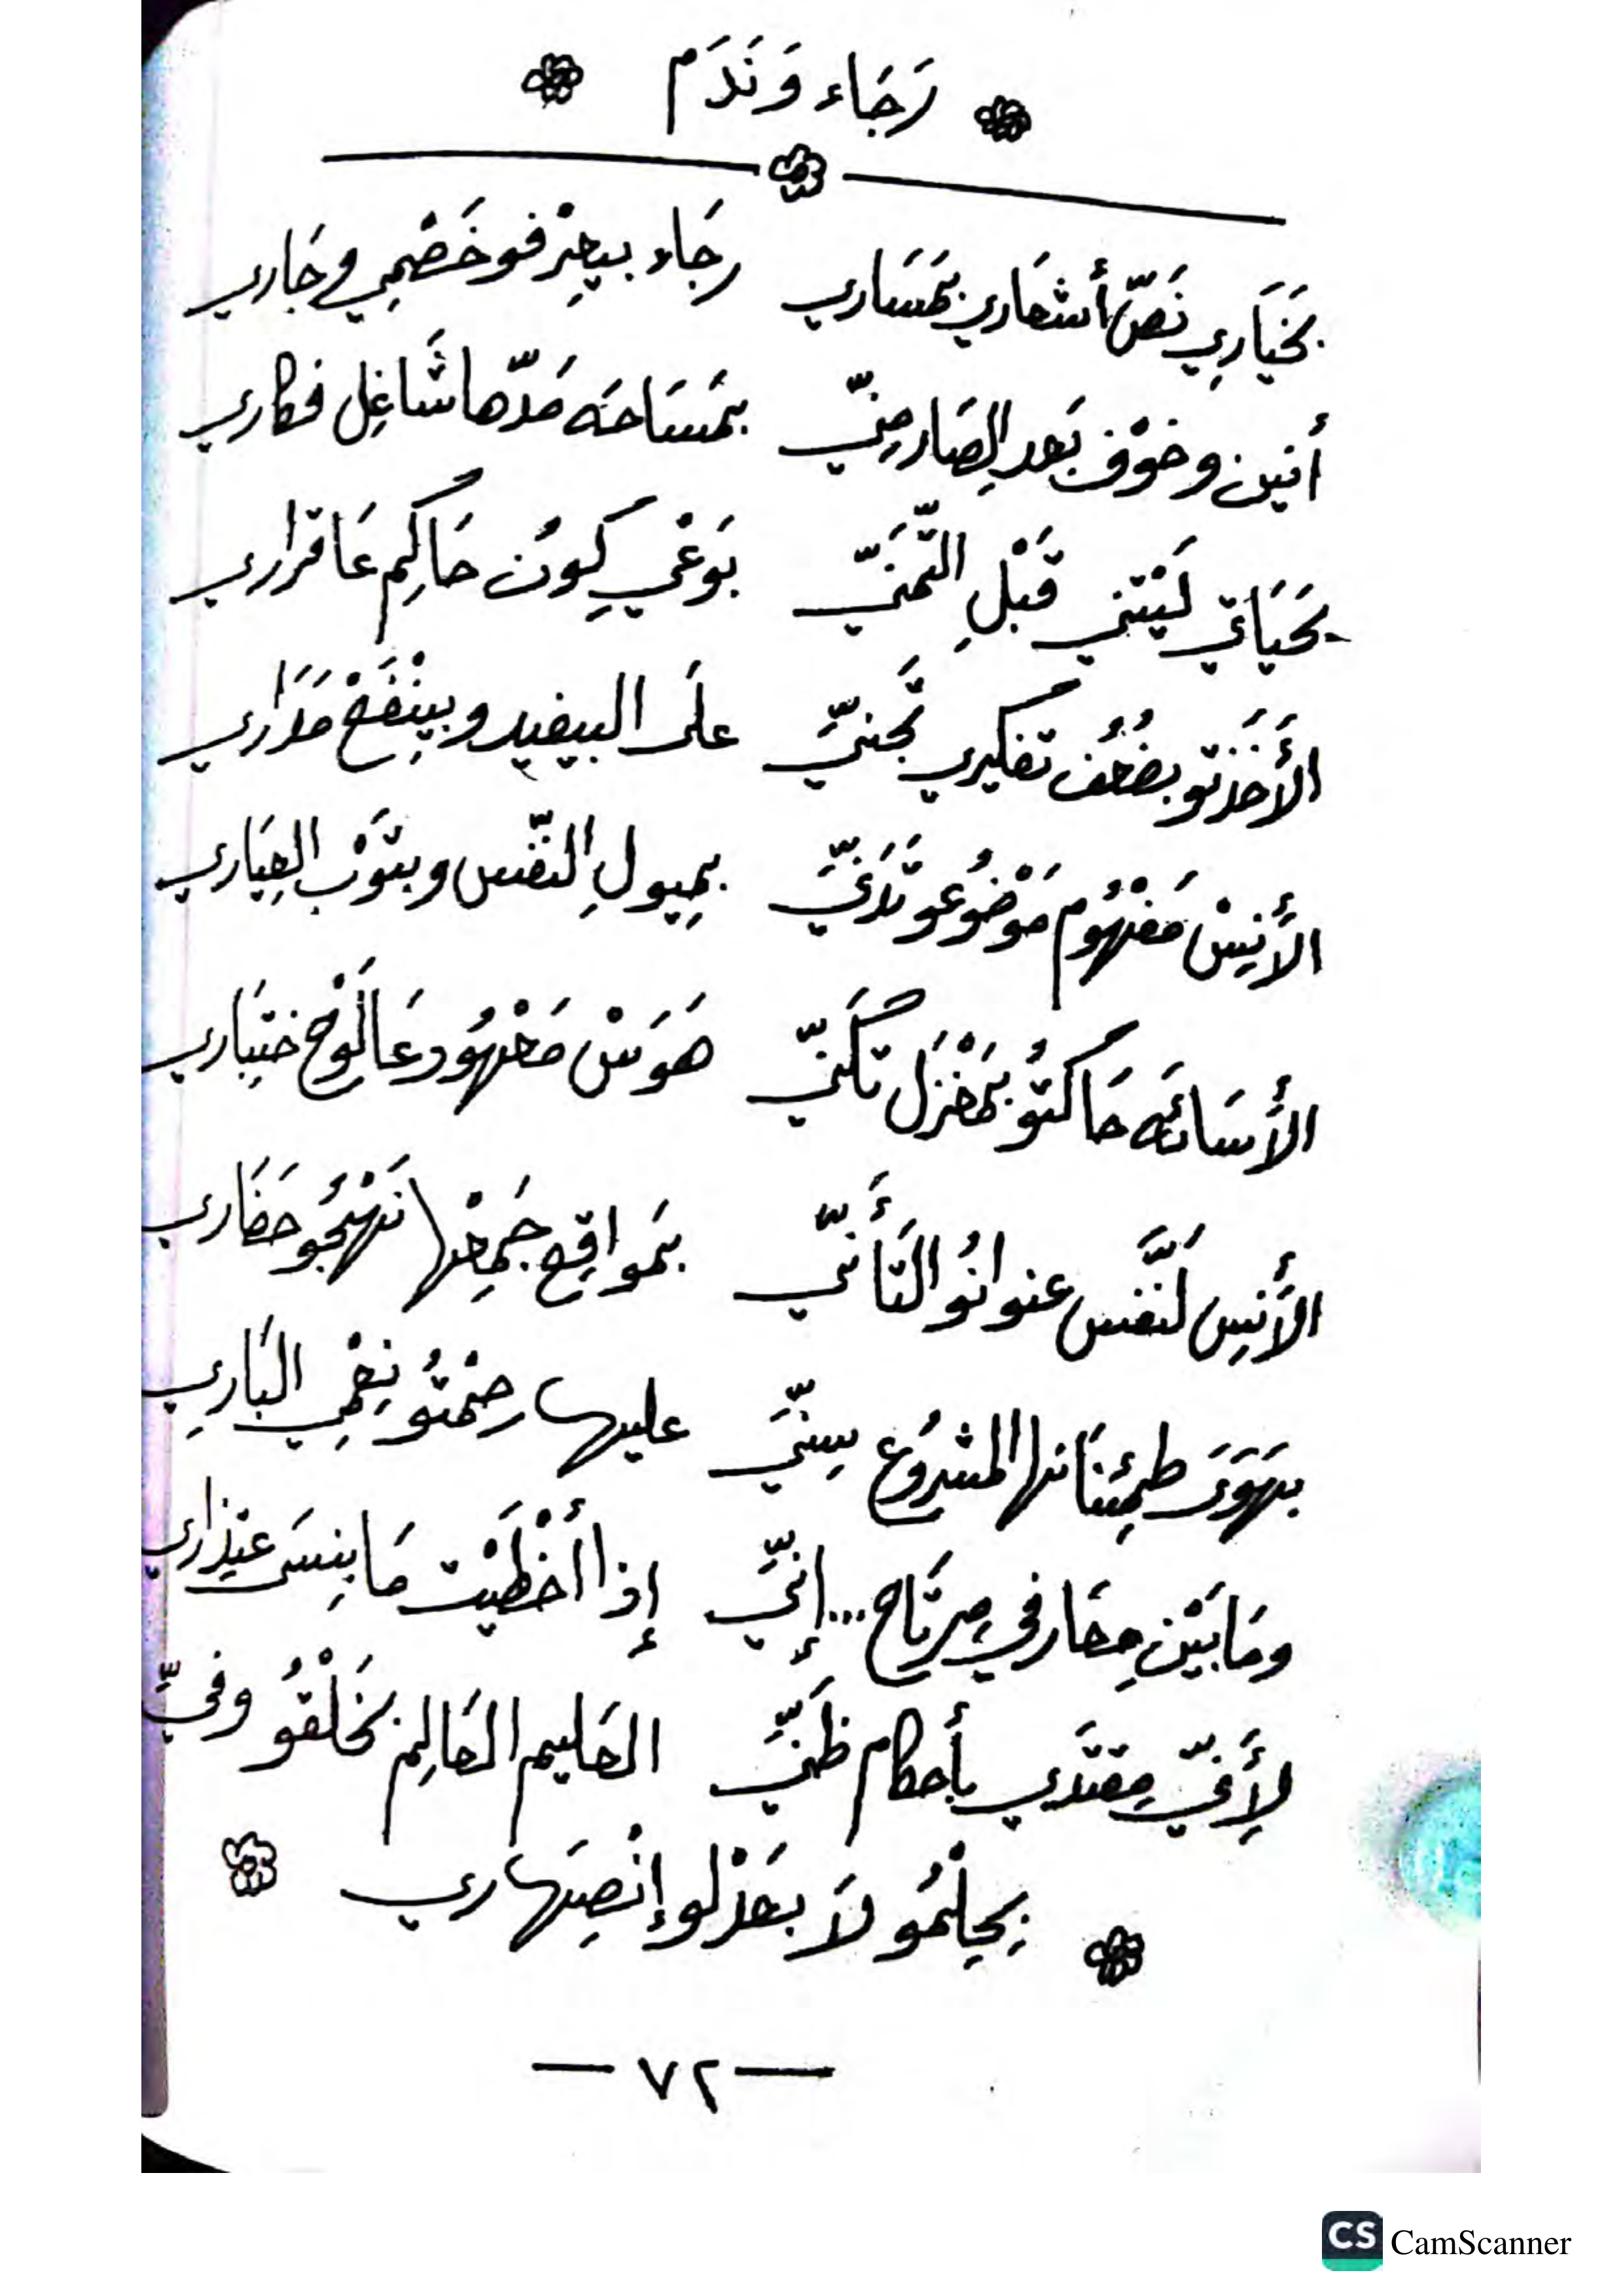 رَجَاء وَنَدَم
بخَيَارِي نَصّ أشعَاري بمَسَاري رجَاء بيعِرْفو خَصْمِي وجَاري
أنين وخوْف بَعد الصَار مِنّي بمَسَاحَه مَدّها شَاغِل فكاري
بحَيَاتي لَيْتني قَبْلِ التّمَنّي بوَعْي كِون حَاكِم عَا قراري
الأَخَذتو بضُعُف تفكيري تجَنّي على البيفيد وبيِنْفَعْ مَدَاري
الأَنِيسْ مَفْهُوم مَوْضُوعو تَدَنّي بمِيولِ النّفس وبتَوْب العِيَاري
الأسَاءَه حَاكتُو بمَغْزَل تكَنّي هَوَسْ مَعْهُود عَا لَوْح ختِبَاري
الأَنِيس لَنَّفس عنوانُو التَأَنّي بمَواقِع جَمِعْها نَهْجُو حَضَاري
بهَوَى طمِئنَانها المشرُوع سِنّي عليها رحْمتُو نِعْمِي البَارِي
ومَا بَيْن مِحتَار في مِرتَاح...إنّي إذا أخْطَيْت مَا بِنسَى عتِذَاري
لأَِنّي مِقتَدي بأحكام ظَنّي الحَليم الحَالِم بخَلْقُو وفيِّ
بِحِلْمُو لاَ بعَذلو إنْصِهَاري
— ٧٢ —
CS CamScanner